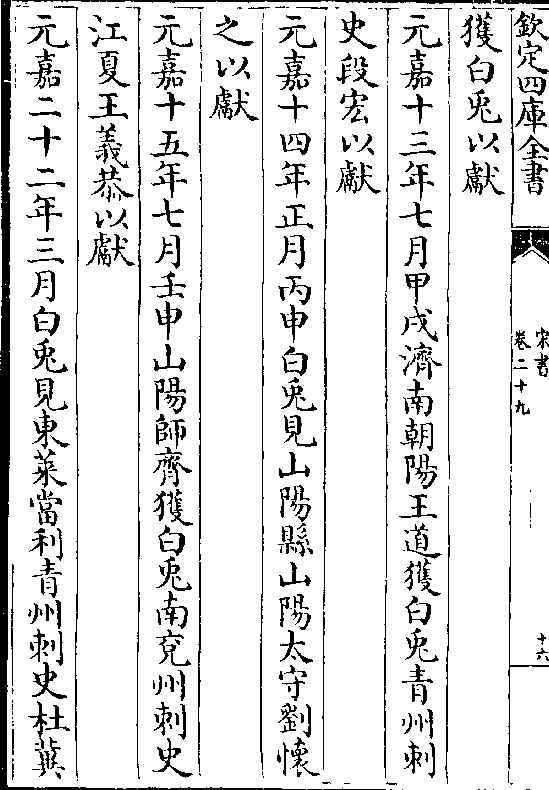 欽定四庫全書
宋書
卷二十九
十六
獲白兎以獻
元嘉十三年七月甲戌濟南朝陽王道獲白兎青州刺
史段宏以獻
元嘉十四年正月丙申白兎見山陽縣山陽太守劉懐
之以獻
元嘉十五年七月壬申山陽師齊獲白兎南兖州刺史
江夏王義恭以獻
元嘉二十二年三月白兎見東萊當利青州刺史杜冀